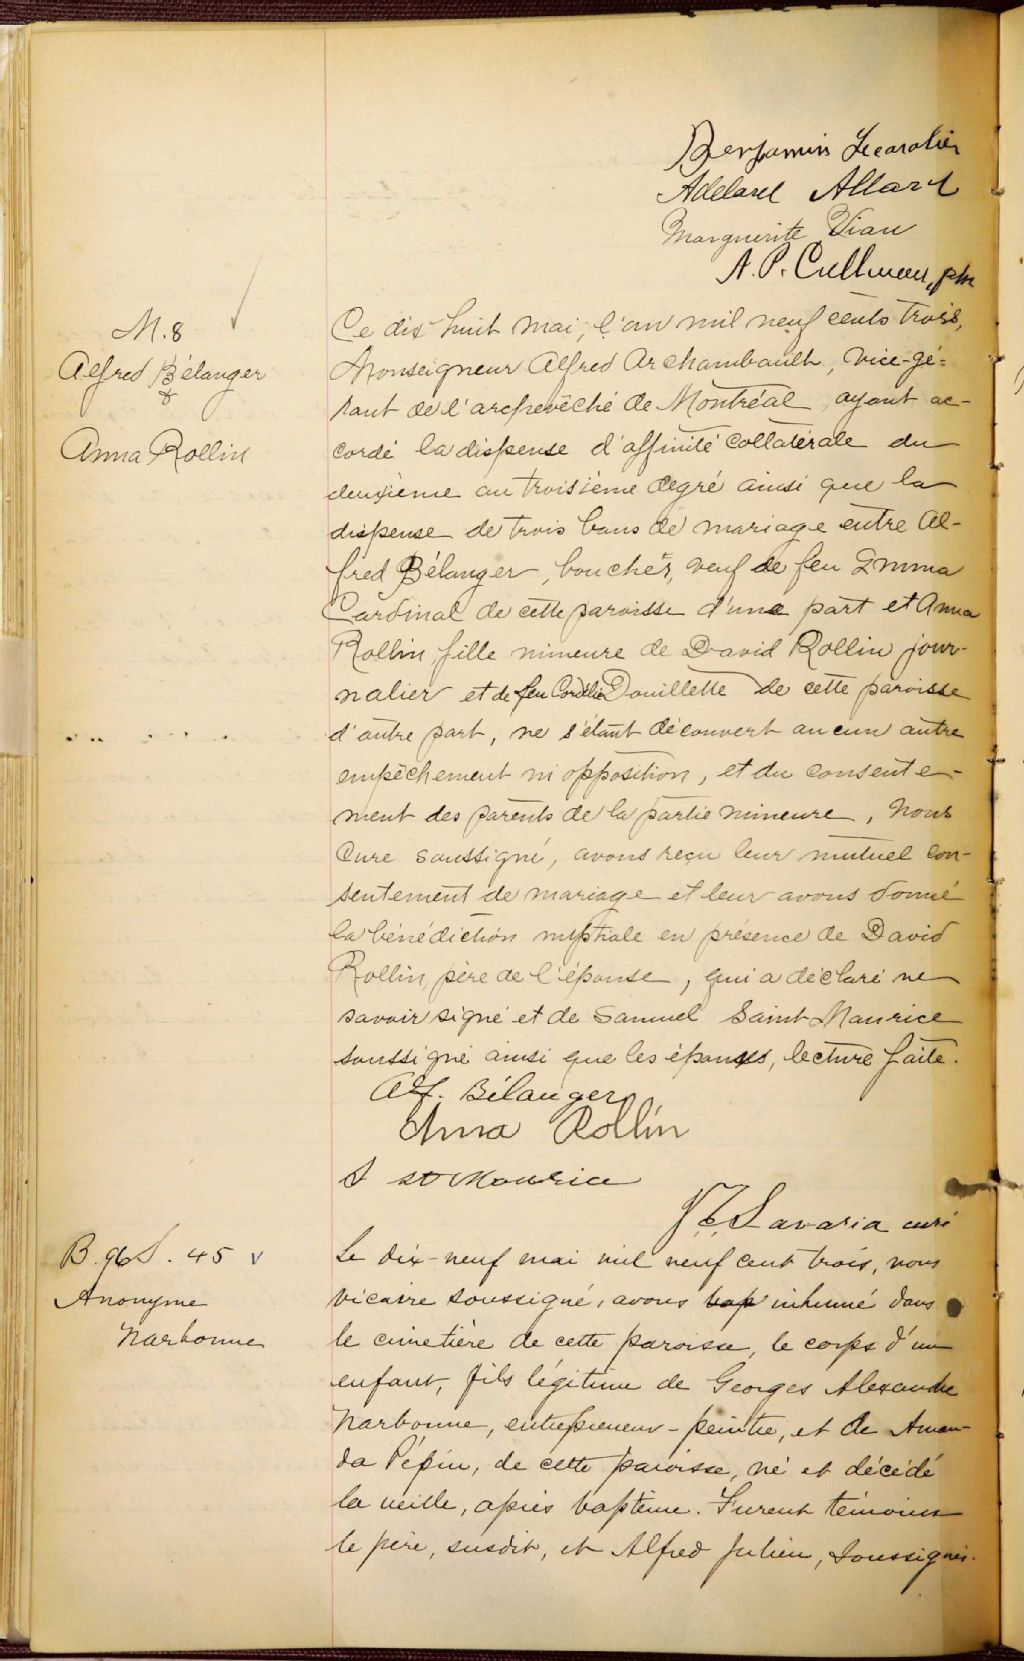 Benjamin Lecavalier
Adelard Allard
Marguerite Viau
A. P. Cullman, ptr
M. 8
Alfred Bélanger
&
Anna Rollin
Ce dix huit mai, l'an mil neuf cents trois,
Monseigneur Alfred Archambault, Vice-gé-
rant de l'archevêché de Montréal, ayant ac-
cordé la dispense d'affinité collatérale du
deuxième au troisième degré ainsi que la
dispense de trois bans de mariage entre Al-
fred Bélanger, boucher, veuf de feu Emma
Cardinal de cette paroisse d'une part et Anna
Rollin, fille mineure de David Rollin jour-
nalier et de feu Cordélie Douillette de cette paroisse
d'autre part, ne s'étant découvert aucun autre
empêchement ni opposition, et du consente-
ment des parents de la partie mineure, Nous
Curé soussigné, avons reçu leur mutuel con-
sentement de mariage et leur avons donné
la bénédiction nuptiale en présence de David
Rollin, père de l'épouse, qui a déclaré ne
savoir signé et de Samuel Saint-Maurice
soussigné ainsi que les épouses, lecture faite.
Alf. Bélanger
Anna Rollin
S St Maurice
Savaria curé
B. 96 S. 45 v
Anonyme
Narbonne
Le dix-neuf mai mil neuf cent trois, nous
vicaire soussigné, avons bap inhumé dans
le cimetière de cette paroisse, le corps d'un
enfant, fils légitime de Georges Alexandre
Narbonne, entrepreneur-peintre, et de Aman-
da Pépin, de cette paroisse, né et décédé
la veille, après baptême. Furent témoins
le père, susdit, et Alfred Julien, soussignés.